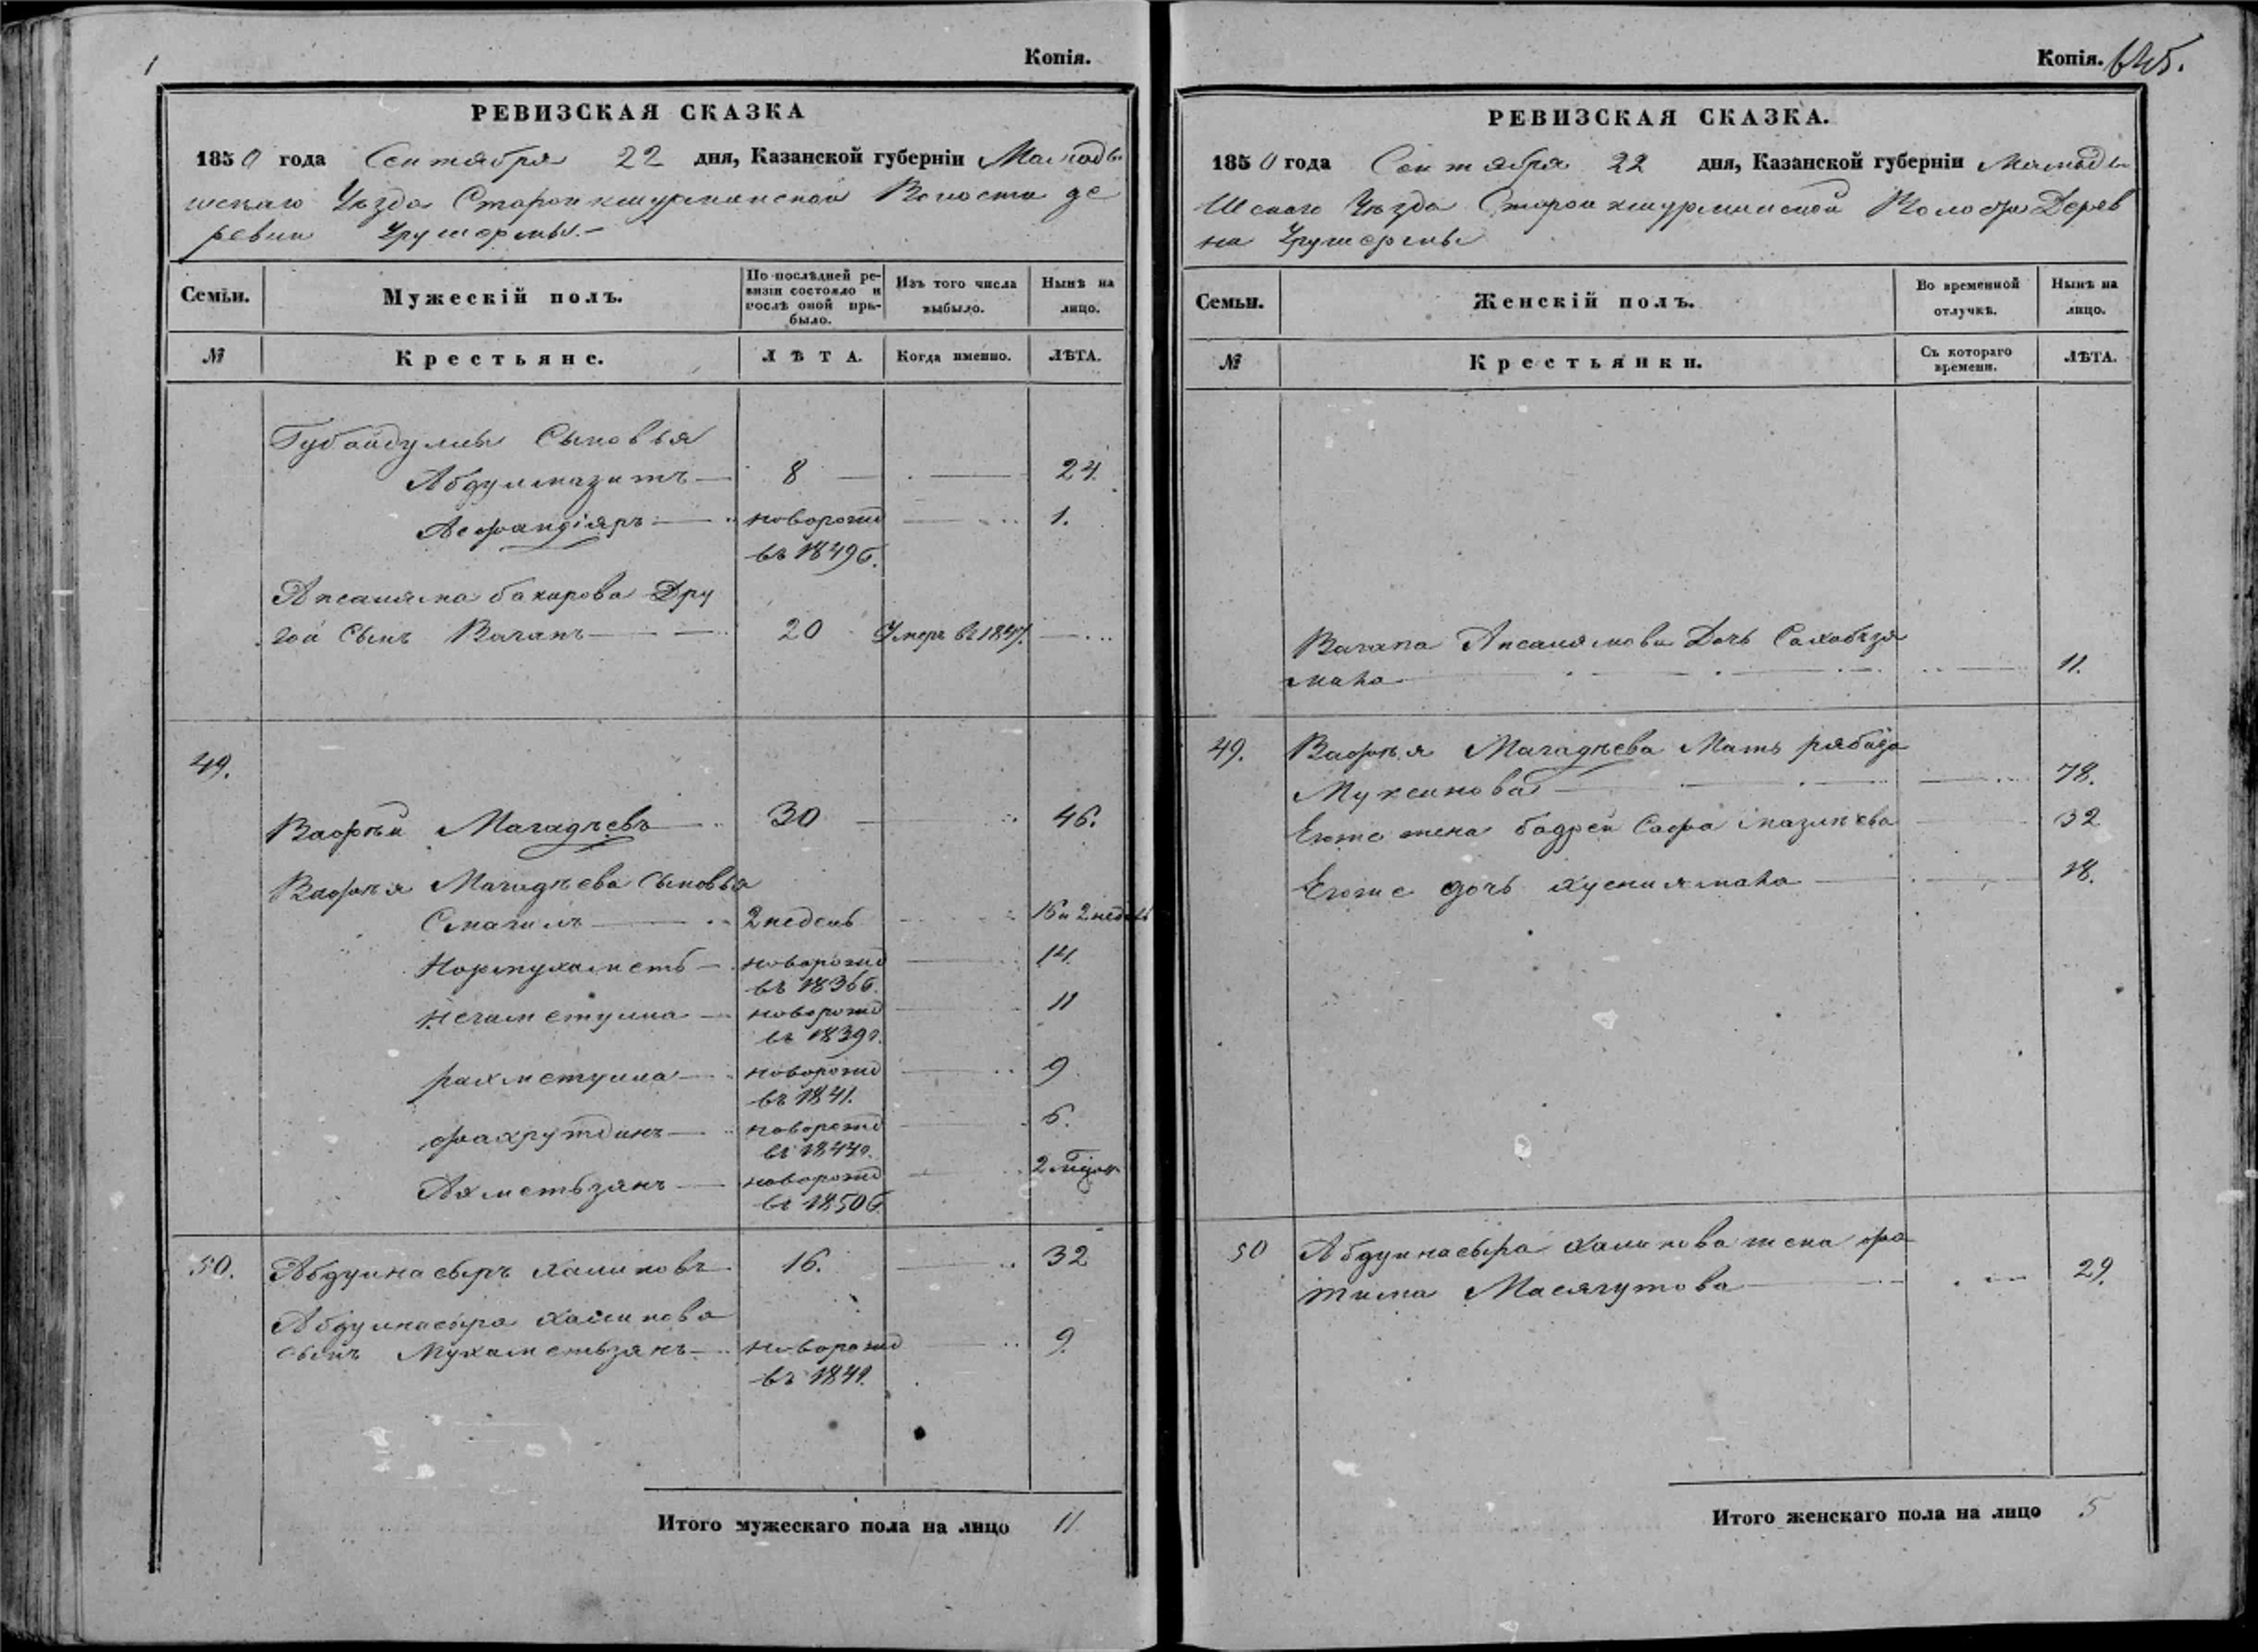 Копія.
РЕВИЗСКАЯ СКАЗКА
1850 года Сентября 22 дня, Казанской губерніи Мамады
шскаго Уѣзда Староикшурминской Волости де
ревни
Семьи.
Мужескій полъ.
По послѣдней ре-
визіи состояло и
послѣ оной при-
было.
Изъ того числа
выбыло.
Нынѣ на
лицо.
№
Крестьяне.
ЛѢТА.
Когда именно.
ЛѢТА.
Губайдуллы Сыновья
Абдулмазитъ 8 24.
Асфандіяръ новорожд 1.
въ 1849 г.
Апсаляма бакирова Дру
гой сынъ Вагапъ 20 Умеръ въ 1837.
49.
Вафѣй Магадѣевъ 30 46.
Вафѣя Магадѣева сыновья
Смагилъ 2 недель 16 и 2 недель
Нормухаметъ новорожд 14.
въ 1836 г.
Негаметулла новорожд 11
въ 1839 г.
рахметулла новорожд 9
въ 1841.
фахрутдинъ новорожд 6.
въ 1844 г.
Ахметьзянъ новорожд 2
въ 1850 г.
50. Абдулнасыръ Халиковъ 16. 32
Абдулнасыра Халикова
сынъ Мухаметьзянъ новорожд 9.
въ 1841.
Итого мужескаго пола на лицо 11.
Копія. 645.
РЕВИЗСКАЯ СКАЗКА.
1850 года Сентября 22 дня, Казанской губерніи Мамады
Шскаго Уѣзда Староикшурминской Волости Дерев
ни
Семьи.
Женскій полъ.
Во временной
отлучкѣ.
Нынѣ на
лицо.
№
Крестьянки.
Съ котораго
времени.
ЛѢТА.
Вагапа Апсалямова Дочь Сахабзя
мала 11.
49. Вафѣя Магадѣева Мать рябига
Муксинова 78.
Егоже жена бадрей Сафа 32
Егоже дочь хусниямала 18.
50 Абдулнасыра Халикова жена фа
тима Масягутова 29.
Итого женскаго пола на лицо 5